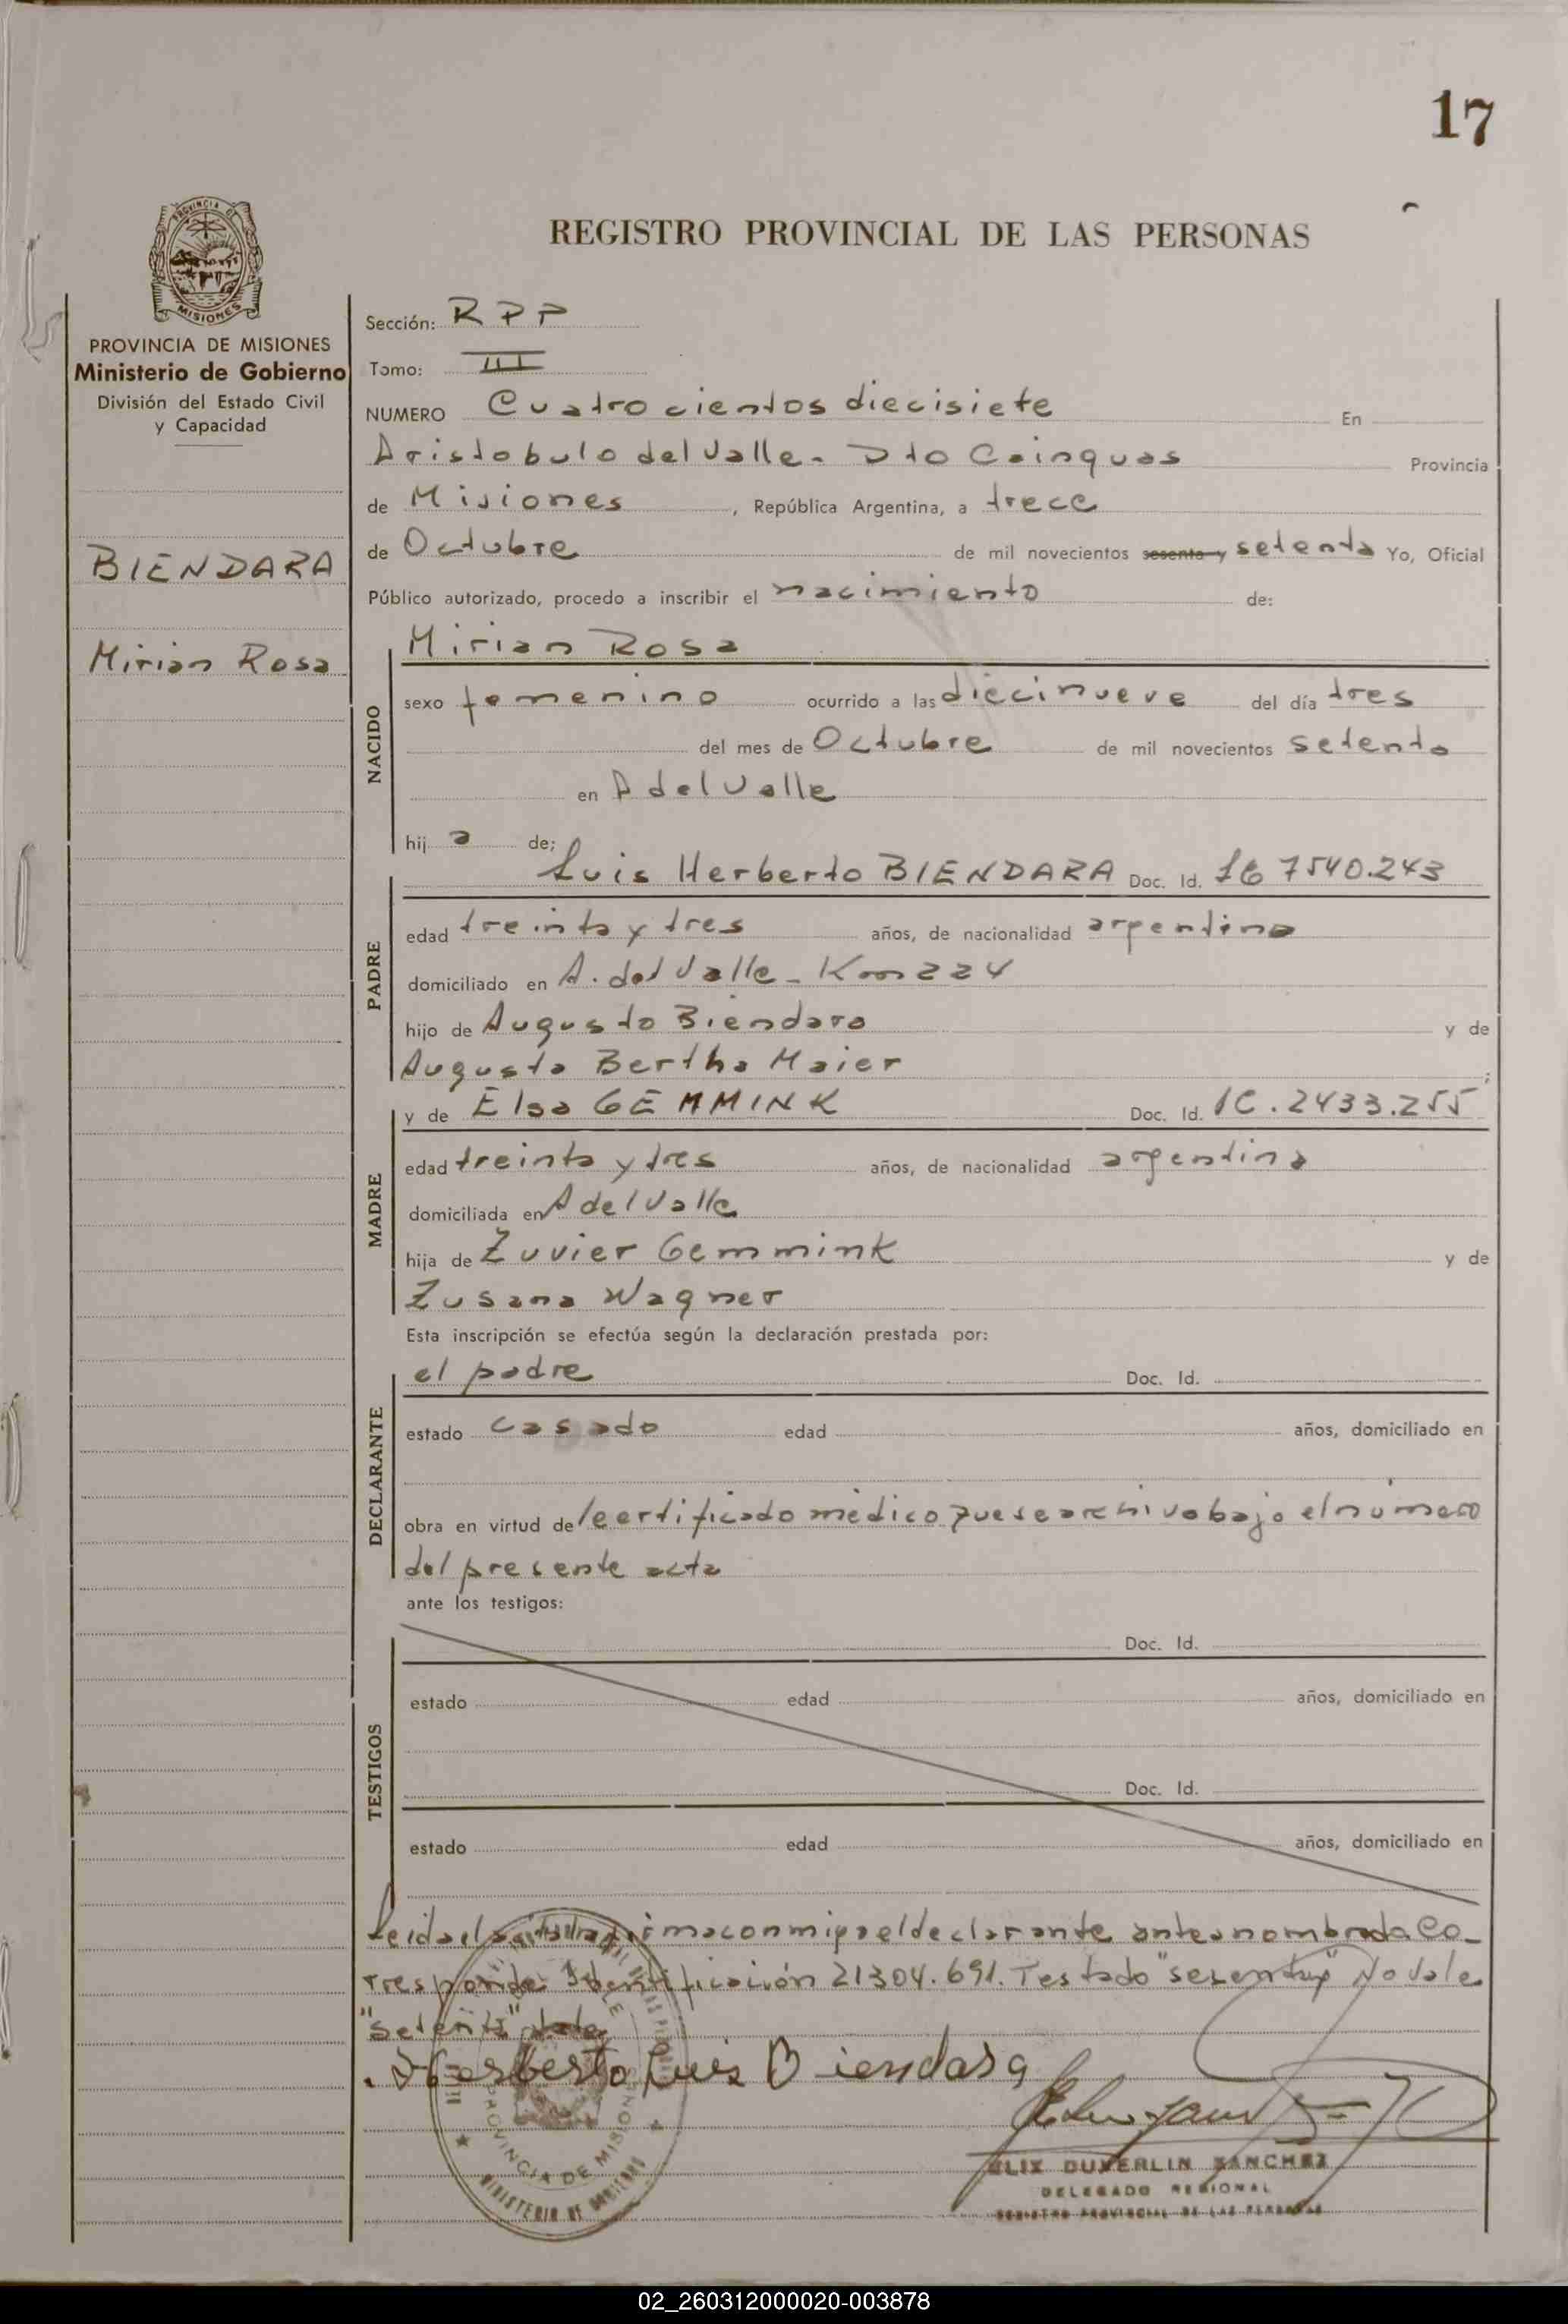 17
REGISTRO PROVINCIAL DE LAS PERSONAS
PROVINCIA DE MISIONES
Ministerio de Gobierno
División del Estado Civil
y Capacidad
BIENDARA
Mirian Rosa
Sección: R P P
Tomo: III
NUMERO Cuatrocientos diecisiete En
Aristobulo del Valle - Dto Cainguas Provincia
de Misiones, República Argentina, a trece
de Octubre de mil novecientos sesenta y setenta Yo, Oficial
Público autorizado, procedo a inscribir el nacimiento de:
NACIDO
Mirian Rosa
sexo femenino ocurrido a las diecinueve del día tres
del mes de Octubre de mil novecientos setenta
en A del Valle
hij a de;
PADRE
Luis Herberto BIENDARA Doc. Id. 7540.243
edad treinta y tres años, de nacionalidad argentina
domiciliado en A. del Valle - Km 224
hijo de Augusto Biendara y de
Augusta Bertha Maier
MADRE
y de Elsa GEMMINK Doc. Id. 2433.255
edad treinta y tres años, de nacionalidad argentina
domiciliada en A del Valle
hija de Zuvier Gemmink y de
Zusana Wagner
Esta inscripción se efectúa según la declaración prestada por:
DECLARANTE
el padre Doc. Id.
estado casado edad años, domiciliado en
obra en virtud del certificado médico que se archiva bajo el número
del presente acta
ante los testigos:
TESTIGOS
Doc. Id.
estado edad años, domiciliado en
Doc. Id.
estado edad años, domiciliado en
Leida el acta la firma conmigo el declarante antes nombrado. Co-
rresponde Identificación 21304.691. Testado "sesenta y" No vale
"setenta" vale
Herberto Luis Biendara
ELIX DUVERLIN SANCHEZ
DELEGADO REGIONAL
REGISTRO PROVINCIAL DE LAS PERSONAS
PROVINCIA DE MISIONES
MINISTERIO DE GOBIERNO
02_260312000020-003878